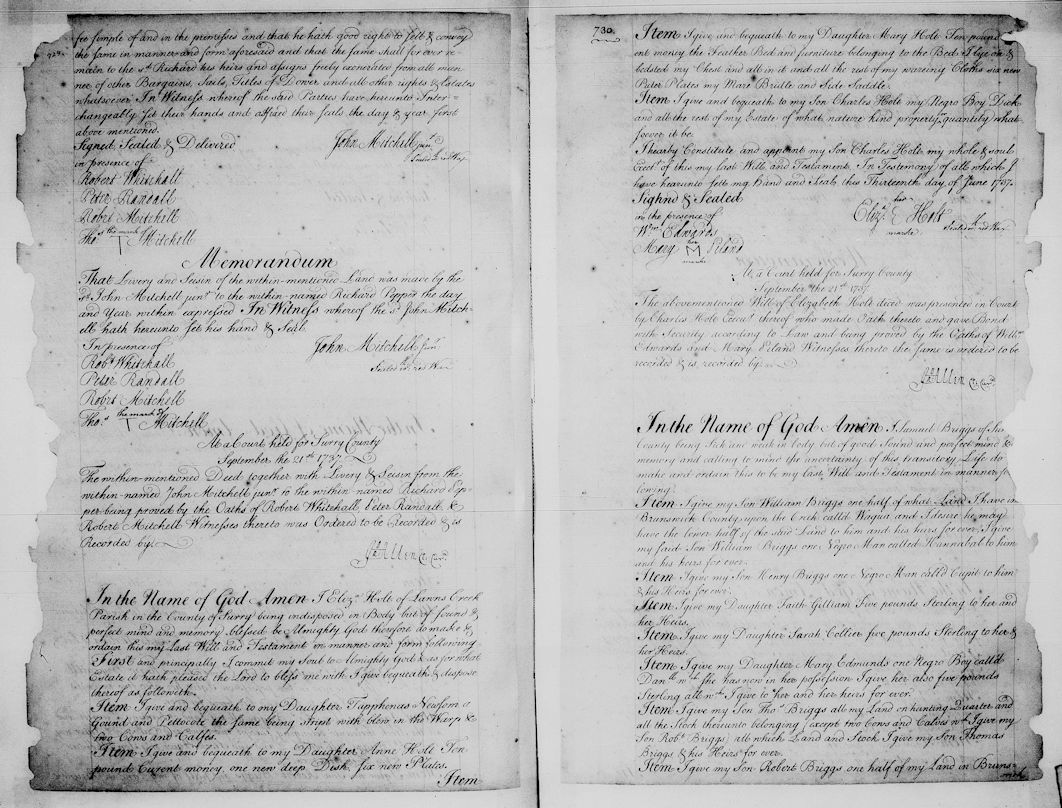 729.
fee simple of and in the premisses and that he hath good right to sell & convey
the same in manner and form aforesaid and that the same shall for ever re-
main to the sd. Richard his heirs and assigns freely exonerated from all man
ner of other Bargains, Sails, Titles of Dower and all other rights & Estates
whatsoever In Witness whereof the said Parties have hereunto Inter-
changeably set their hands and affixed their seals the day & year first
above mentioned.
Signed, Sealed & Delivered John Mitchell junr.
in presence of Sealed in red Wax
Robert Whitehall
Peter Randall
Robrt Mitchell
Thos. the mark of T Mitchell
Memorandum
That Livery and Seisin of the within-mentioned Land was made by the
sd. John Mitchell junr. to the within-named Richard Pepper the day
and Year within expressed In Witness whereof the sd. John Mitch-
ell hath hereunto set his hand & Seal.
In presence of John Mitchell junr.
Robt. Whitehall Sealed in red Wax
Peter Randall
Robrt Mitchell
Thos. the mark of T Mitchell
At a Court held for Surry County
September the 21st. 1737
The within-mentioned Deed together with Livery & Seisin from the
within-named John Mitchell junr. to the within-named Richard Pep-
per being proved by the Oaths of Robert Whitehall, Peter Randall, &
Robert Mitchell Witnesses thereto was Ordered to be Recorded & is
Recorded by
Jn. Allen Cl. Cur.
In the Name of God Amen I Elizr. Holt of Lawns Creek
Parish in the County of Surry being indisposed in Body but of sound &
perfect mind and memory blessed be Almighty God therefore do make &
ordain this my Last Will and Testament in manner and form following
First and principally I commit my Soul to Almighty God & as for what
Estate it hath pleased the Lord to bless me with I give bequeath & dispose
thereof as followeth.
Item I give and bequeath to my Daughter Tapphenas Newsom a
Gound and Petticote the same being stript with blew in the Warp &
two Cows and Calfes.
Item I give and bequeath to my Daughter Anne Holt Ten
pound Curent money, one new deep Dish, six new Plates.
Item
730.
Item I give and bequeath to my Daughter Mary Holt Ten pound
ent money the Feather Bed and furniture belonging to the Bed I lye on &
bedsted my Chest and all in it and all the rest of my wareing Cloths six new
Puter Plates my Mare Bridle and Side Saddle.
Item I give and bequeath to my Son Charles Holt my Negro Boy Dick
and all the rest of my Estate of what nature kind property quantity what
soever it be.
I hearby Constitute and appoint my Son Charles Holt my whole & soul
Exectr. of this my last Will and Testament. In Testemony of all which I
have hearunto sett my Hand and Seal, this Thirteenth day of June 1737.
Sighnd & Sealed her
in the presence of Elizr. E Holt
Wm. Edwards marke Sealed in red Wax
Mary her M Eiland
marke
At a Court held for Surry County
September the 21st. 1737
The abovementioned Will of Elizabeth Holt deced was presented in Court
by Charles Holt Execr. thereof who made Oath thereto and gave Bond
with Security according to Law and being proved by the Oaths of Willm.
Edwards and Mary Eiland Witnesses thereto the same is ordered to be
recorded & is recorded by
Jn. Allen Cl. Cur.
In the Name of God Amen I Samuel Briggs of Sur
County being Sick and weak in body but of good Sound and perfect mind &
memory and calling to mind the uncertainty of this transitory Life do
make and ordain this to be my last Will and Testament in manner fo
lowing
Item I give my Son William Briggs one half of what Land I have in
Brunswick County upon the Creek calld Waqua and I desire he may
have the lower half of the said Land to him and his heirs for ever, I give
my said Son William Briggs one Negro Man called Hannabal to him
and his heirs for ever.
Item I give my Son Henry Briggs one Negro Man calld Cupit to him
& his Heirs for ever.
Item I give my Daughter Faith Gilliam Five pounds Sterling to her and
her Heirs.
Item I give my Daughter Sarah Collier five pounds Sterling to her &
her Heirs.
Item I give my Daughter Mary Edmunds one Negro Boy call'd
Danll. wch. She has now in her possession I give her also five pounds
Sterling all wch. I give to her and her heirs for ever.
Item I give my Son Thos. Briggs all my Land on hunting Quarter and
all the Stock thereunto belonging except two Cows and Calves wch. I give my
Son Robt. Briggs, all which Land and Stock I give my Son Thomas
Briggs & his Heirs for ever.
Item I give my Son Robert Briggs, one half of my Land in Bruns-
wick